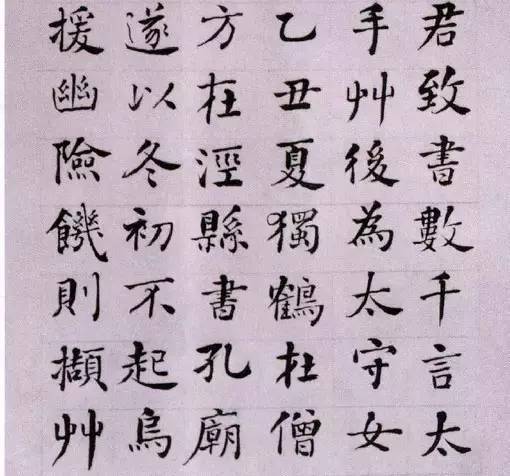 君致書數千言太
手艸後為太守女
乙丑夏獨鶴杜僧
方在涇縣書孔廟
遂以冬初不起烏
援幽險饑則擷艸